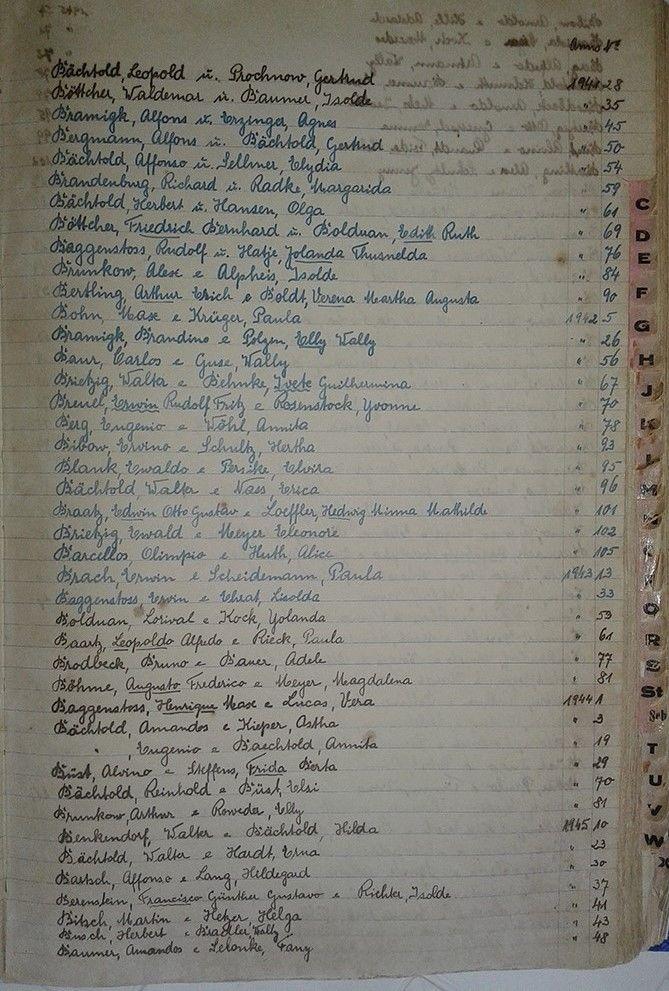 Anno No
Bächtold, Leopold u. Prochnow, Gertrud 1941 28
Böttcher, Waldemar u. Baumer, Isolde " 35
Bramigk, Alfons u. Erzinger, Agnes " 45
Bergmann, Alfons u. Bächtold, Gertrud " 50
Bächtold, Affonso u. Sellmer, Elydia " 54
Brandenburg, Richard u. Radke, Margarida " 59
Bächtold, Herbert u. Hansen, Olga " 61
Böttcher, Friedrich Bernhard u. Bolduan, Edith Ruth " 69
Baggenstoss, Rudolf u. Hatje, Jolanda Thusnelda " 76
Brunkow, Alex e Alpheis, Isolde " 84
Bertling, Arthur Erich e Boldt, Verena Martha Augusta " 90
Bohn, Max e Krüger, Paula 1942 5
Bramigk, Brandino e Polzen, Elly Wally " 26
Baur, Carlos e Guse, Wally " 56
Brietzig, Walta e Behnke, Ivete Guilhermina " 67
Breuel, Erwin Rudolf Fritz e Rosenstock, Yvonne " 70
Berg, Eugenio e Wöhl, Annita " 78
Bibow, Ervino e Schultz, Hertha " 93
Blank, Ewaldo e Persike, Elvira " 95
Bächtold, Walter e Naes, Erica " 96
Braatz, Edwin Otto Gustav e Loeffler, Hedwig Minna Mathilde " 101
Brietzig, Ewald e Meyer Eleonore " 102
Barcellos, Olimpio e Huth, Alice " 105
Brach, Erwin e Scheidemann, Paula 1943 13
Baggenstoss, Erwin e Lisolda " 33
Bolduan, Lorival e Kock, Yolanda " 59
Baartz, Leopoldo Alfredo e Rieck, Paula " 61
Brodbeck, Bruno e Bauer, Adele " 77
Böhme, Augusto Frederico e Meyer, Magdalena " 81
Baggenstoss, Henrique Max e Lucas, Vera 1944 1
Bächtold, Amandos e Kieper, Astha " 3
" , Eugenio e Baechtold, Annita " 19
Büst, Alvino e Steffens, Frida Berta " 29
Bächtold, Reinhold e Büst, Elsi " 70
Brunkow, Arthur e Roweder, Elly " 81
Benkendorf, Walter e Bächtold, Hilda 1945 10
Bächtold, Walter e Hardt, Erna " 23
Bartsch, Affonso e Lang, Hildegard " 30
Berenstein, Francisco Günther Gustavo e Richter, Isolde " 37
Bitsch, Martin e Hetzer, Helga " 41
Busch, Herbert e Wally " 43
Baumer, Amandos e Fany " 48
C
D
E
F
G
H
J
K
L
M
N
O
R
S
St
Sch
T
U
V
W